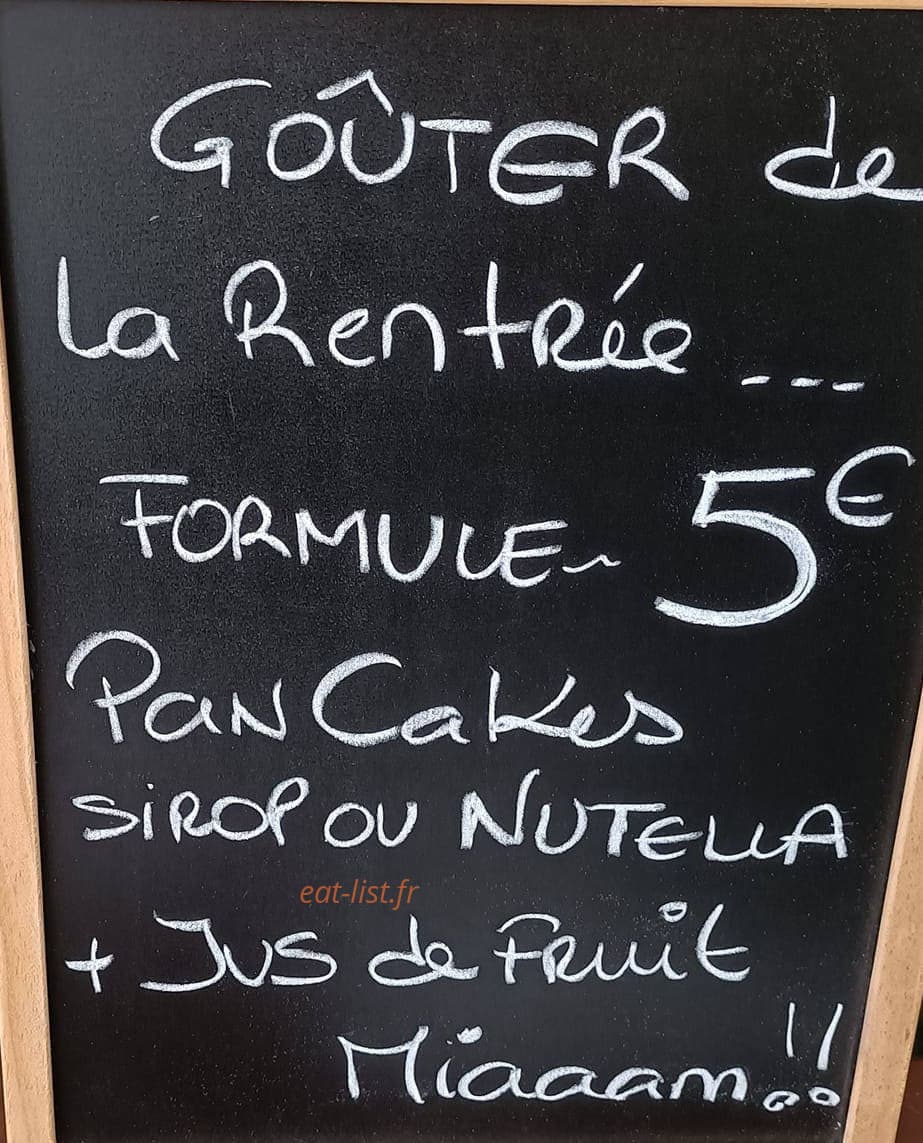 GOÛTER de
la Rentrée ...
FORMULE~ 5€
PanCakes
SiROP OU NUTELLA
eat-list.fr
+ Jus de Fruit
Miaaam!!